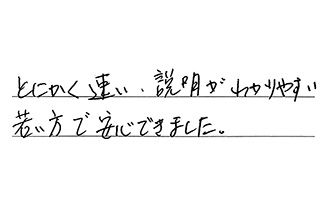 とにかく速い、説明がわかりやすい
若い方で安心できました。